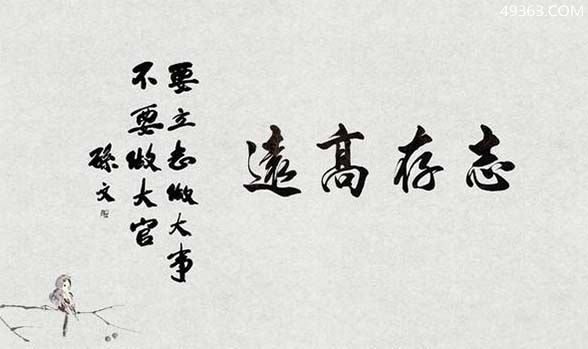 49363.COM
志存高遠
要立志做大事
不要做大官
孫文